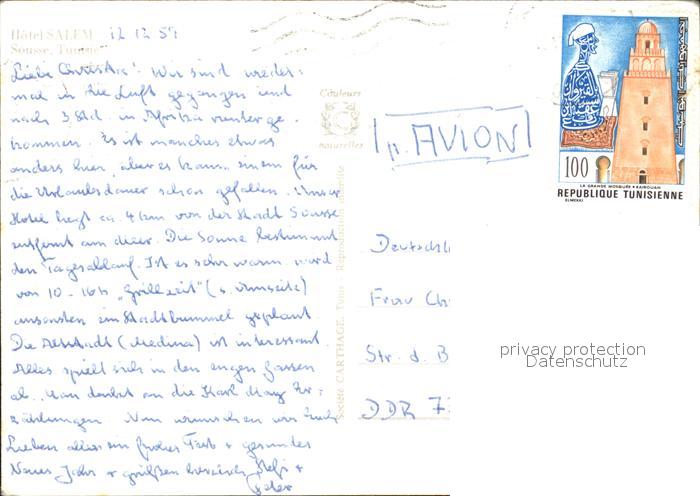 Hôtel SALEM
Sousse, Tunisie
Liebe Christra! Wir sind wieder-
mal in die Luft gegangen und
nach 3 Std. in Afrika runterge-
kommen. Es ist manches etwas
anders hier, aber es kann einem für
die Urlaubsdauer schon gefallen. Unser
Hotel liegt ca. 4 km von der Stadt Sousse
entfernt am Meer. Die Sonne bestimmt
den Tagesablauf. Ist es sehr warm wird
von 10 - 16 h "Grillzeit" (s. Umseite)
ansonsten ein Stadtbummel geplant.
Die Altstadt (Medina) ist interessant.
Alles spielt sich in den engen Gassen
ab. Man denkt an die Karl May Er-
zählungen. Nun wünschen wir Euch
Lieben allen ein frohes Fest + gesundes
Neues Jahr + grüßen herzlich
Peter
Couleurs
naturelles
Société CARTHAGE, Tunis - Reproduction interdite
p. AVION
100
LA GRANDE MOSQUÉE • KAIROUAN
REPUBLIQUE TUNISIENNE
ELMEKKI
Deutschl
Frau Ch
Str. d. B
DDR 7
privacy protection
Datenschutz